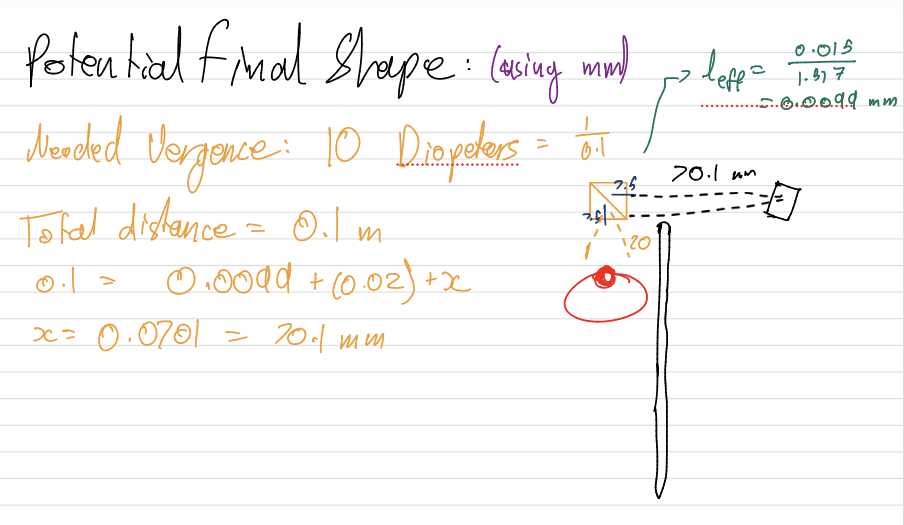 Potential Final Shape: (using mm)
leff = 0.015 / 1.517
= 0.0099 mm
Needed Vergence: 10 Diopeters = 1 / 0.1
70.1 mm
7.5
7.5
20
Total distance = 0.1 m
0.1 = 0.0099 + (0.02) + x
x = 0.0701 = 70.1 mm